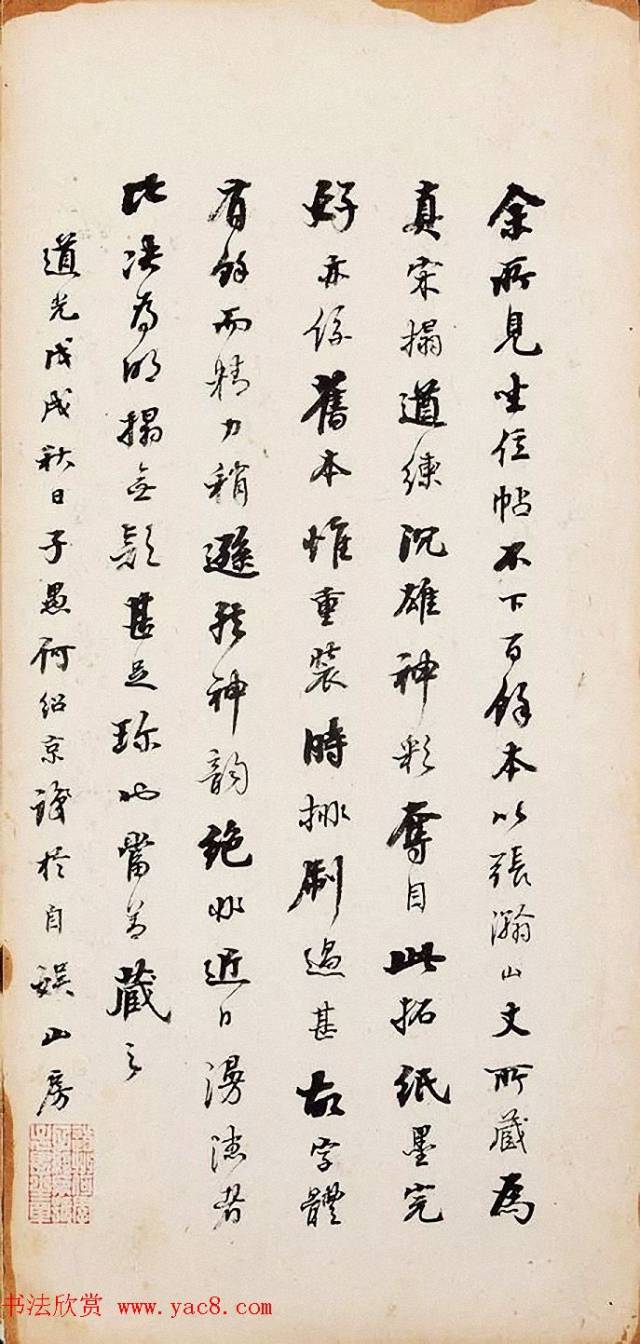 余所見坐位帖不下百餘本以張瀚山丈所藏爲
真宋搨遒練沉雄神彩奪目此拓紙墨完
好亦係舊本惟重裝時排刷過甚故字體
有餘而精力稍遜然神韵絶非近日漫漶者
比决為明搨無疑甚足珎也當善藏之
道光戊戌秋日子愚何紹京識於自娱山房
书法欣赏 www.yac8.com